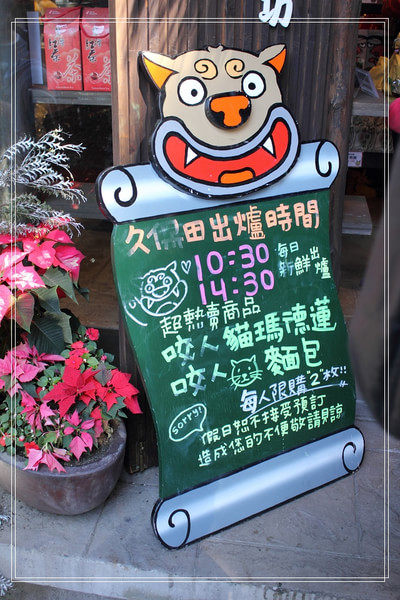 功
久保田出爐時間
10:30
14:30
每日
新鮮出爐
超熱賣商品
咬人貓瑪德蓮
咬人麵包
每人限購"2"枚!!
sorry!
假日恕不接受預訂
造成您的不便敬請見諒